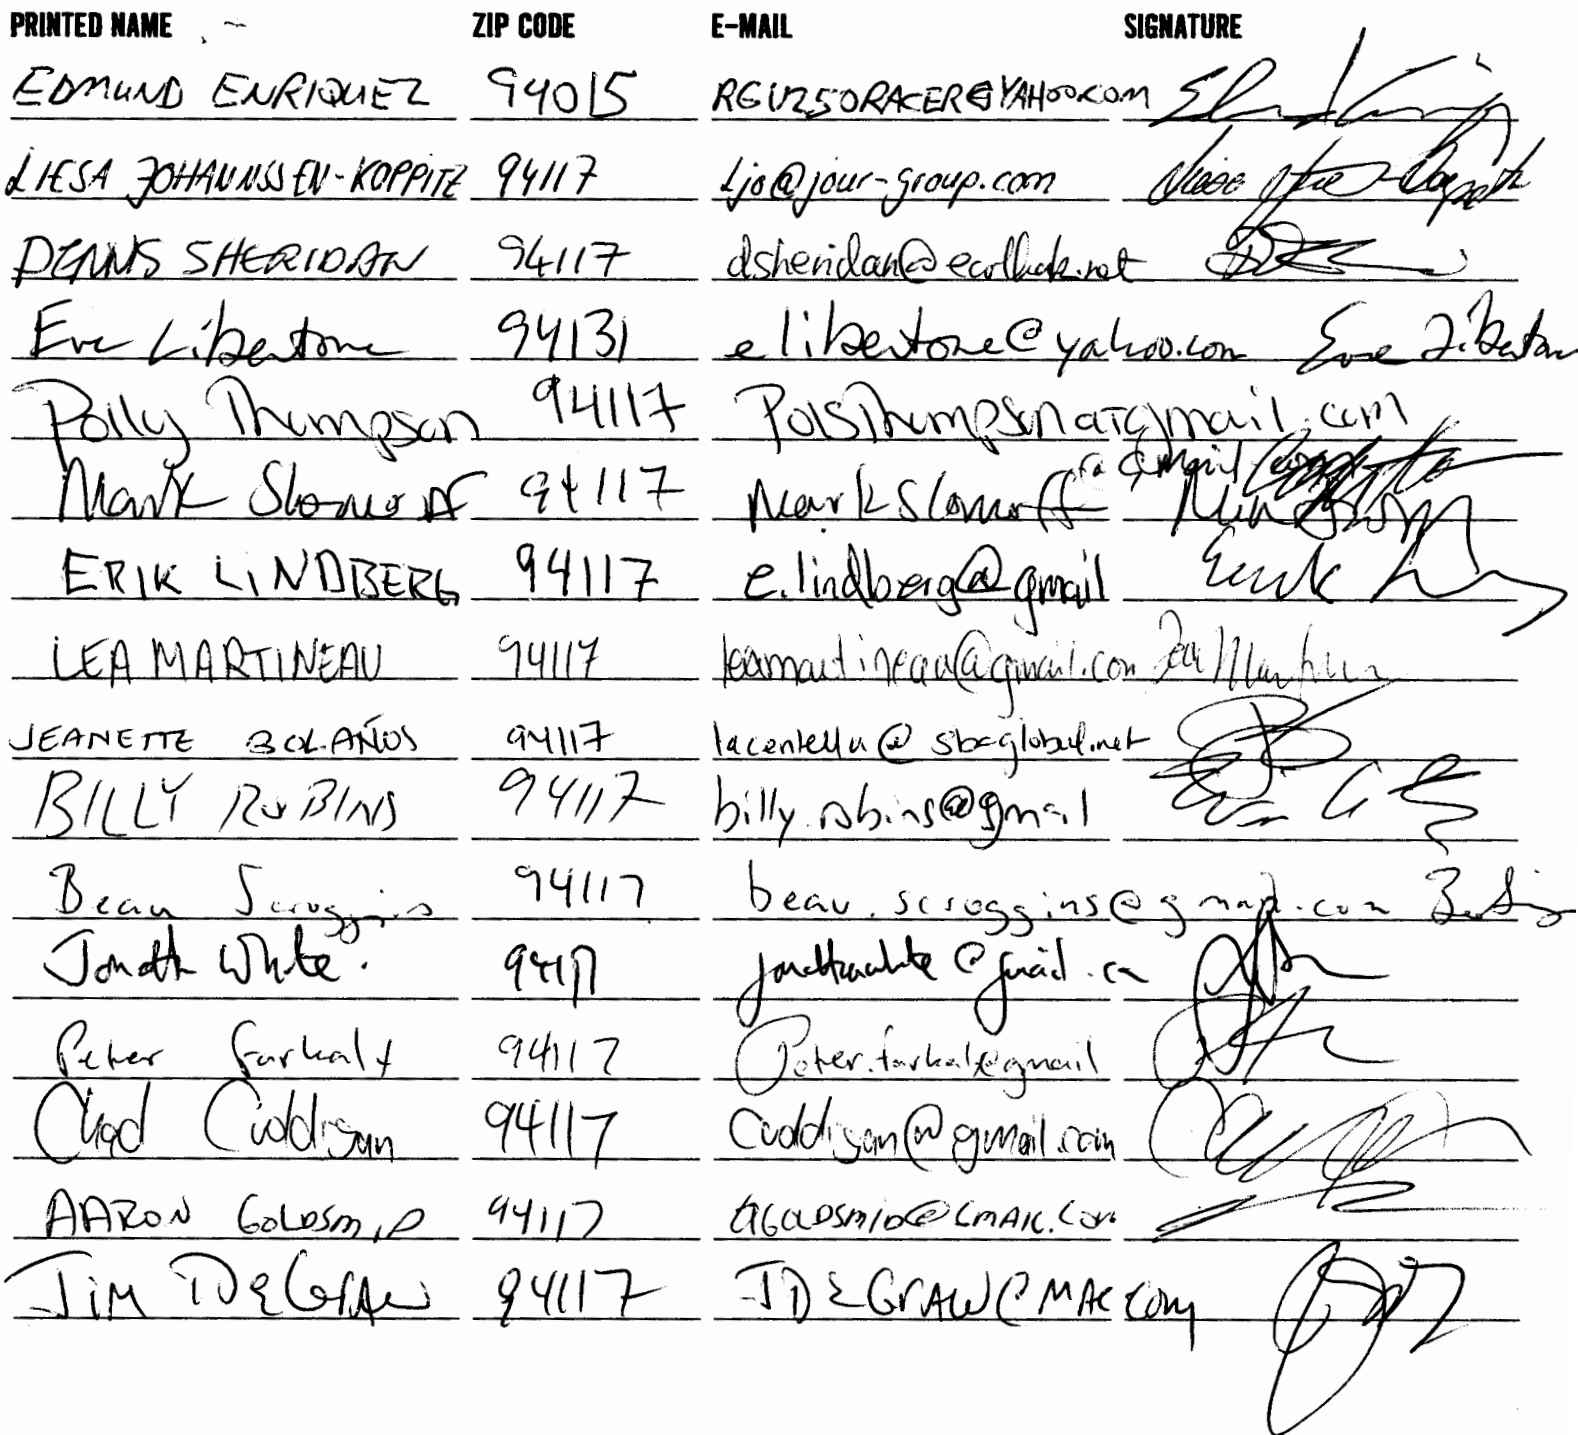 PRINTED NAME ZIP CODE E-MAIL SIGNATURE
EDMUND ENRIQUEZ 94015 RGV250RACER@YAHOO.COM
LIESA JOHANNSSEN-KOPPITZ 94117 Ljo@jour-group.com
DENNIS SHERIDAN 94117 dsheridan@earthlink.net
Eve Libertone 94131 elibertone@yahoo.com Eve Libertone
Polly Thompson 94117 PolsThompson at gmail.com
Mark Slomoff 94117 markslomoff@gmail
ERIK LINDBERG 94117 e.lindberg@gmail Erik
LEA MARTINEAU 94117 leamartineau@gmail.com Lea Martineau
JEANETTE BOLAÑOS 94117 lacentella@sbcglobal.net
BILLY ROBINS 94117 billy.robins@gmail
Beau Scroggins 94117 beau.scroggins@gmail.com
White. 94117
Peter 94117
Chad Cuddigan 94117 Cuddigan@gmail.com
AARON GOLDSMID 94117 AGOLDSMID@GMAIL.COM
JIM DEGRAW 94117 JDEGRAW@MAC.COM